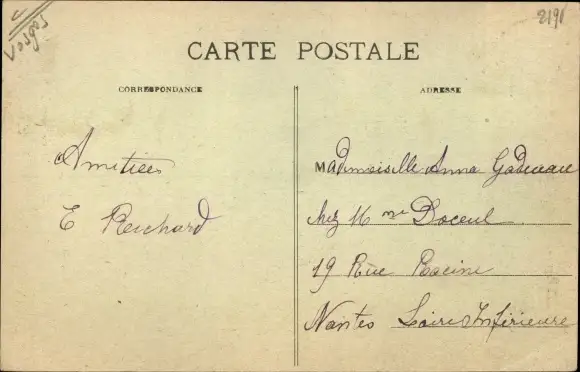 Vosges
2191
CARTE POSTALE
CORRESPONDANCE
ADRESSE
Amitiées
E Reichard
Mademoiselle Anna Gaduceau
chez Mme Doceul
19 Rue Racine
Nantes Loire Inférieure